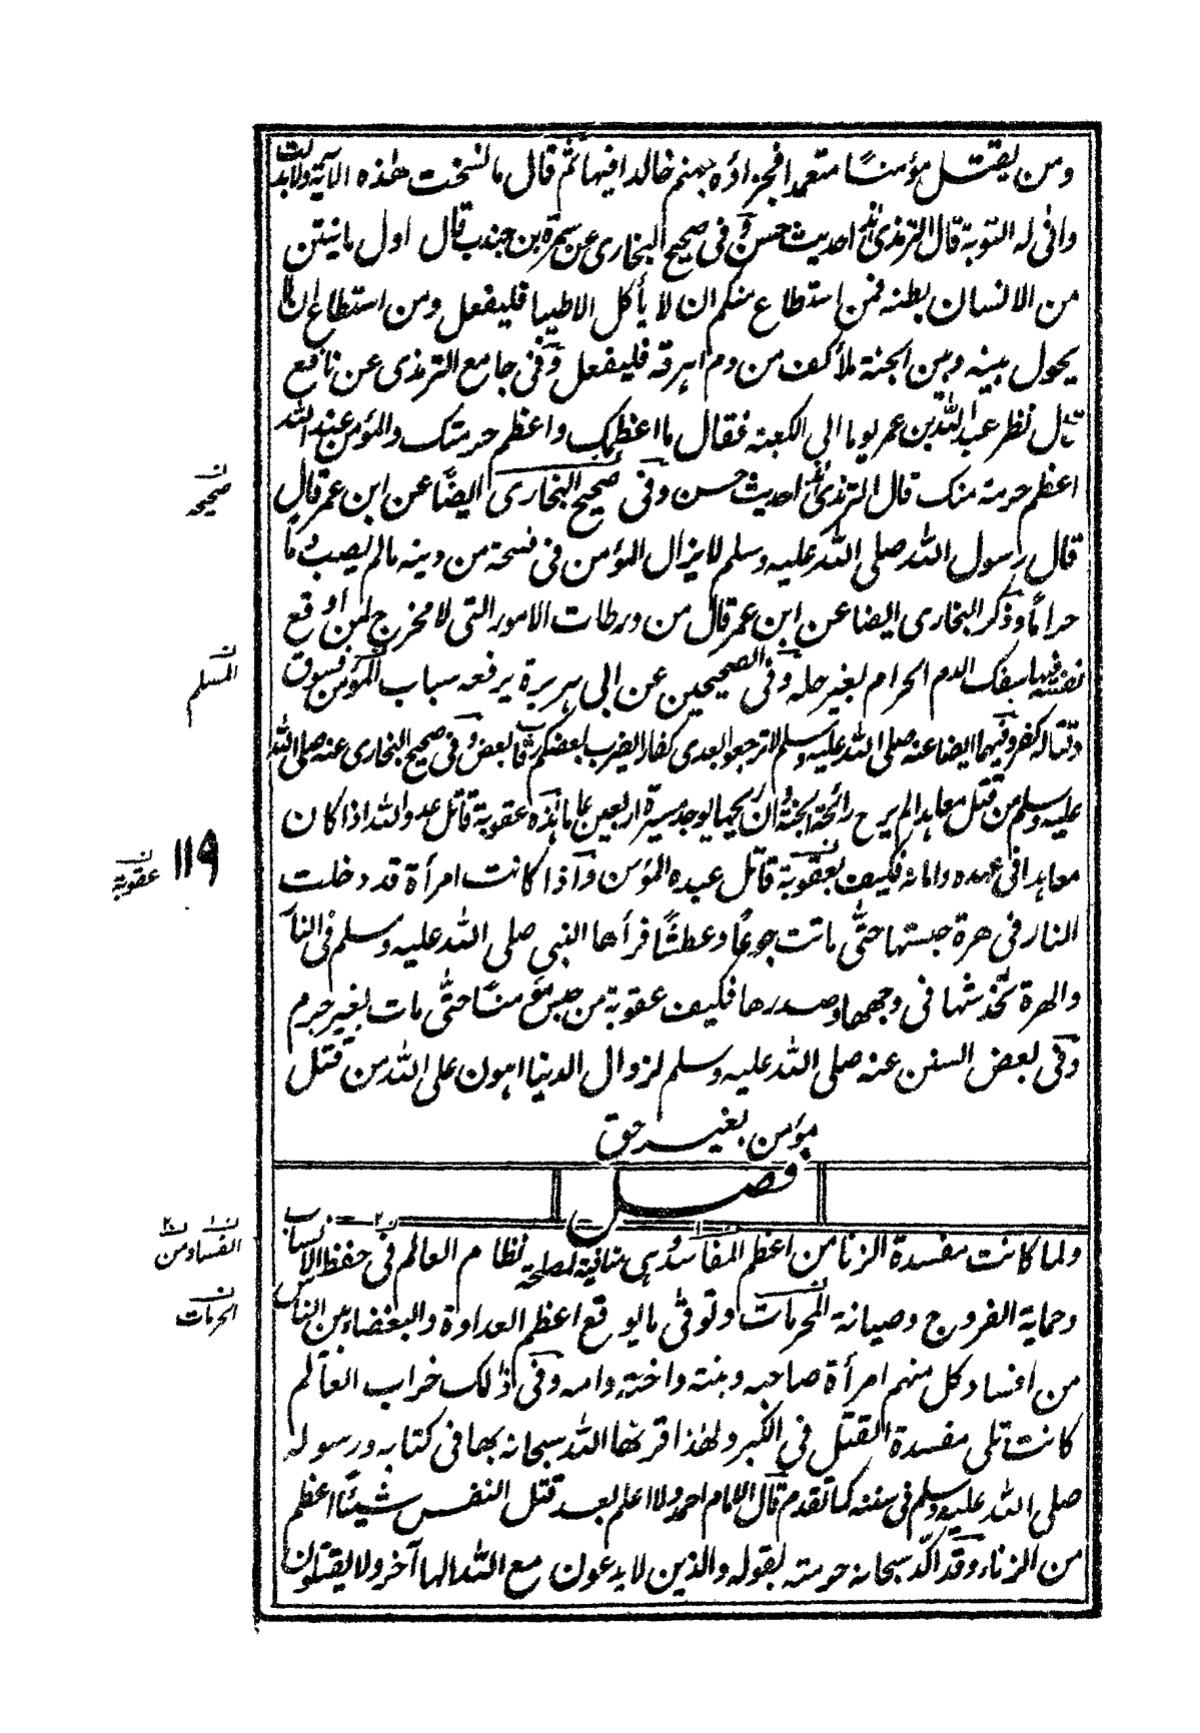 ومن يقتل مؤمنًا متعمدا فجزاؤه جهنم خالدا فيها ثم قال ما نسخت هذه الآية ولا بدلت
وانى له التوبة قال الترمذى هذا حديث حسن وفى صحيح البخارى عن سمرة بن جندب قال اول ما ينتن
من الانسان بطنه فمن استطاع منكم ان لا يأكل الا طيبا فليفعل ومن استطاع ان لا
يحول بينه وبين الجنة ملأ كف من دم اهرقه فليفعل وفى جامع الترمذى عن نافع
قال نظر عبد الله بن عمر يوما الى الكعبة فقال ما اعظمك واعظم حرمتك والمؤمن عند الله
اعظم حرمة منك قال الترمذى هذا حديث حسن وفى صحيح البخارى ايضًا عن ابن عمر قال
قال رسول الله صلى الله عليه وسلم لا يزال المؤمن فى فسحة من دينه ما لم يصب دما
حراما وذكر البخارى ايضا عن ابن عمر قال من ورطات الامور التى لا مخرج لمن اوقع
نفسه فيها سفك الدم الحرام بغير حله وفى الصحيحين عن ابى هريرة يرفعه سباب المؤمن فسوق
وقتاله كفر وفيهما ايضا عنه صلى الله عليه وسلم لا ترجعوا بعدى كفارا يضرب بعضكم رقاب بعض وفى صحيح البخارى عنه صلى الله
عليه وسلم من قتل معاهدا لم يرح رائحة الجنة وان ريحها يوجد مسيرة اربعين عاما هذه عقوبة قاتل عدو الله اذا كان
معاهدا فى عهده وامانه فكيف بعقوبة قاتل عبده المؤمن واذا كانت امرأة قد دخلت
النار فى هرة حبستها حتى ماتت جوعًا وعطشًا فرأها النبى صلى الله عليه وسلم فى النار
والهرة تخدشها فى وجهها وصدرها فكيف عقوبة من حبس مؤمنًا حتى مات بغير جرم
وفى بعض السنن عنه صلى الله عليه وسلم لزوال الدنيا اهون على الله من قتل
مؤمن بغير حق
فصل
ولما كانت مفسدة الزنا من اعظم المفاسد وهى منافية لمصلحة نظام العالم فى حفظ الانساب
وحماية الفروج وصيانة المحرمات وتوقى ما يوقع اعظم العداوة والبغضاء بين الناس
من افساد كل منهم امرأة صاحبه وبنته واخته وامه وفى ذلك خراب العالم
كانت تلى مفسدة القتل فى الكبر ولهذا قرنها الله سبحانه بها فى كتابه ورسوله
صلى الله عليه وسلم فى سننه كما تقدم قال الامام احمد ولا اعلم بعد قتل النفس شيئًا اعظم
من الزناء وقد اكد سبحانه حرمته بقوله والذين لا يدعون مع الله الها آخر ولا يقتلون
ن
صحيحه
ن
المسلم
ن
عقوبة
١١٩
ن١ ن٢
الفساد من
ن
الحرمات